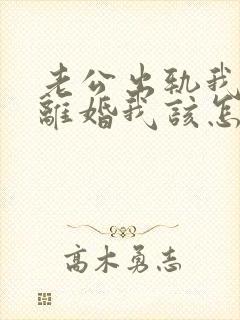 老公出轨我
離婚我該怎
高木勇志